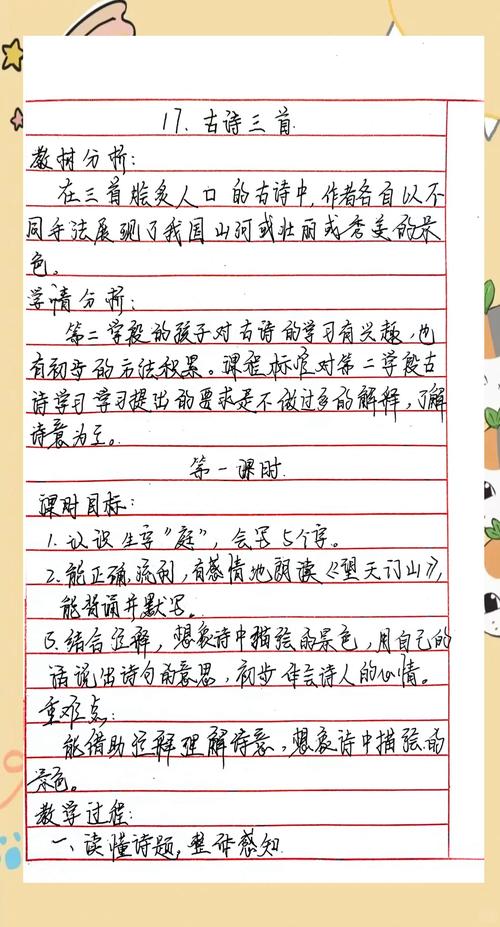 17. 古诗三首
教材分析:
在三首脍炙人口的古诗中,作者各自以不
同手法展现了我国山河或壮丽或秀美的景
色。
学情分析:
第二学段的孩子对古诗的学习有兴趣,也
有初步的方法积累。课程标准对第二学段古
诗学习学习提出的要求是不做过多的解释,了解
诗意为主。
第一课时
课时目标:
1.认识生字“庭”,会写5个字。
2.能正确,流利,有感情地朗读《望天门山》,
能背诵并默写。
3.结合注释,想象诗中描绘的景色,用自己的
话说出诗句的意思,初步体会诗人的心情。
重难点:
能借助注释理解诗意,想象诗中描绘的
景色。
教学过程:
一、读懂诗题,整体感知